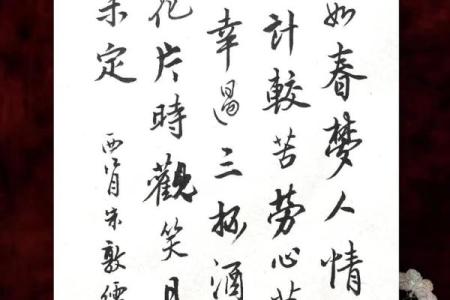 如春夢人情
計較苦勞心
幸遇三杯酒
花片時歡笑
未定
西江月朱敦儒